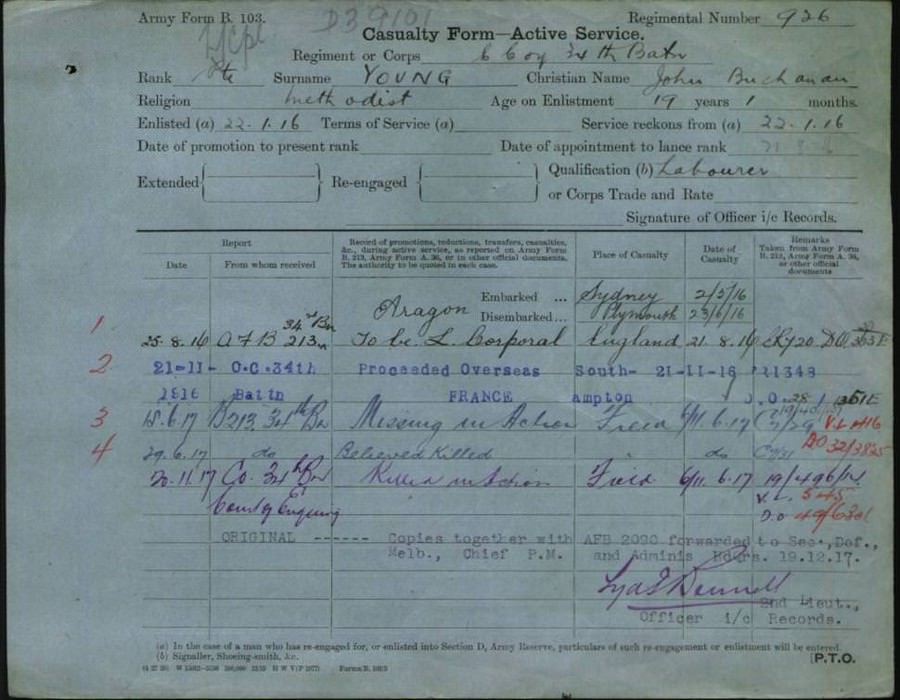 Army Form B. 103. D39101 Regimental Number 926
L/cpl
Casualty Form—Active Service.
Regiment or Corps C Coy 34th Batn
Rank Pte Surname YOUNG Christian Name John Buchanan
Religion Methodist Age on Enlistment 19 years 1 months.
Enlisted (a) 22.1.16 Terms of Service (a) Service reckons from (a) 22.1.16
Date of promotion to present rank Date of appointment to lance rank
Extended Re-engaged Qualification (b) Labourer
or Corps Trade and Rate
Signature of Officer i/c Records.
Report
Date From whom received
Record of promotions, reductions, transfers, casualties,
&c., during active service, as reported on Army Form
B. 213, Army Form A. 36, or in other official documents.
The authority to be quoted in each case.
Place of Casualty
Date of
Casualty
Remarks
Taken from Army Form
B. 213, Army Form A. 36,
or other official
documents
Aragon Embarked ... Sydney 2/5/16
Disembarked... Plymouth 23/6/16
1 25.8.16 A F B 213 34th Bn To be L. Corporal England 21.8.16
2 21-11- O.C.34th Proceeded Overseas South- 21-11-16
1916 Battn FRANCE ampton
3 15.6.17 B213 34th Bn Missing in Action Field 6/11.6.17 V.L 1416
4 29.6.17 do Believed Killed " do DO 32/3825
20.11.17 Co. 34th Bn Killed in Action Field 6/11.6.17
Court of Enquiry V.L. 545
ORIGINAL ------ Copies together with AFB 2090 forwarded to Sec., Def.,
Melb., Chief P.M. and Adminis Hdqrs. 19.12.17.
2nd Lieut.,
Officer i/c Records.
(a) In the case of a man who has re-engaged for, or enlisted into Section D, Army Reserve, particulars of such re-engagement or enlistment will be entered.
(b) Signaller, Shoeing-smith, &c.
[P.T.O.